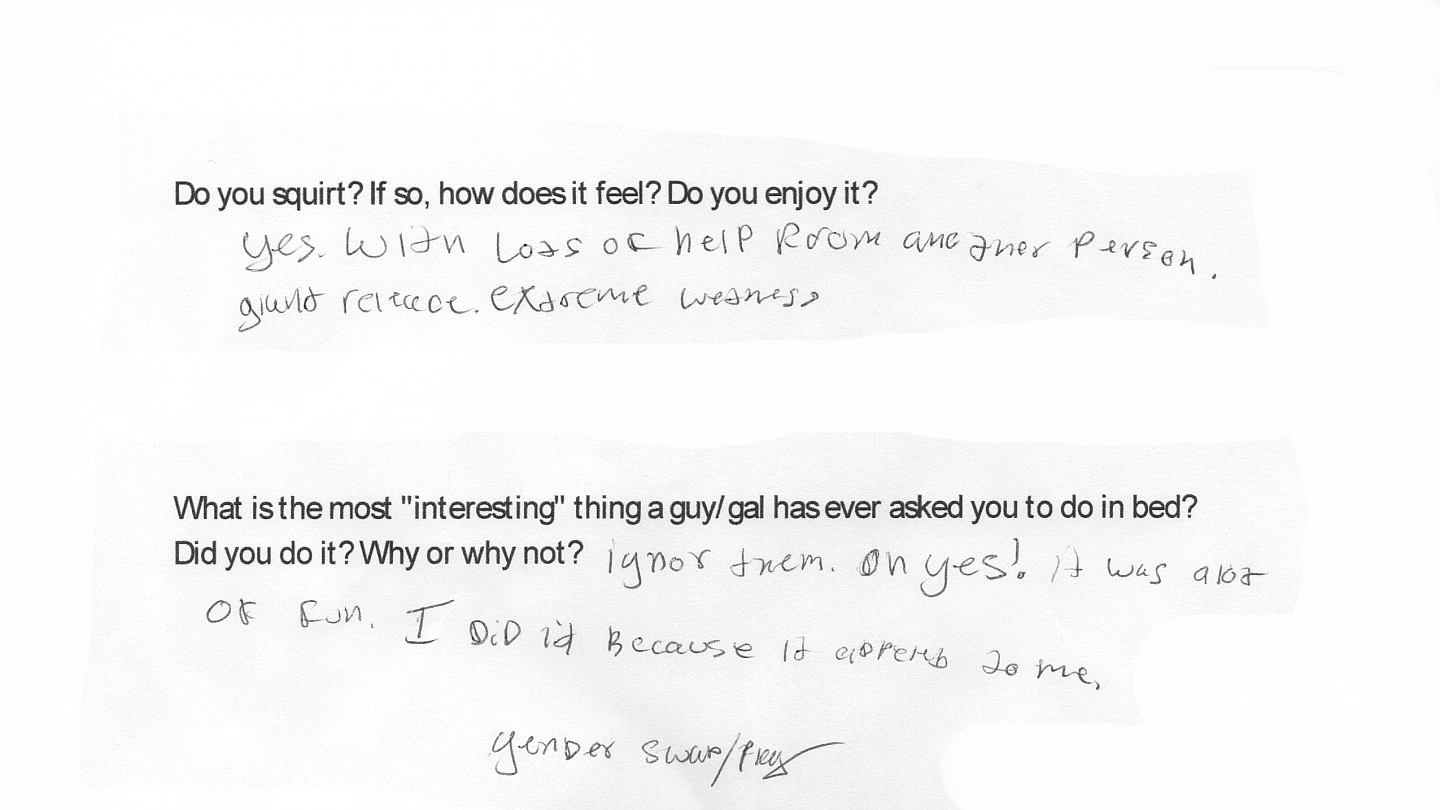 Do you squirt? If so, how does it feel? Do you enjoy it?
yes. With Lots of help from another Person.
giant release. extreme wetness
What is the most "interesting" thing a guy/gal has ever asked you to do in bed?
Did you do it? Why or why not? ignor them. Oh yes! it was alot
of fun. I DiD it Because it appeals to me.
gender swap/play